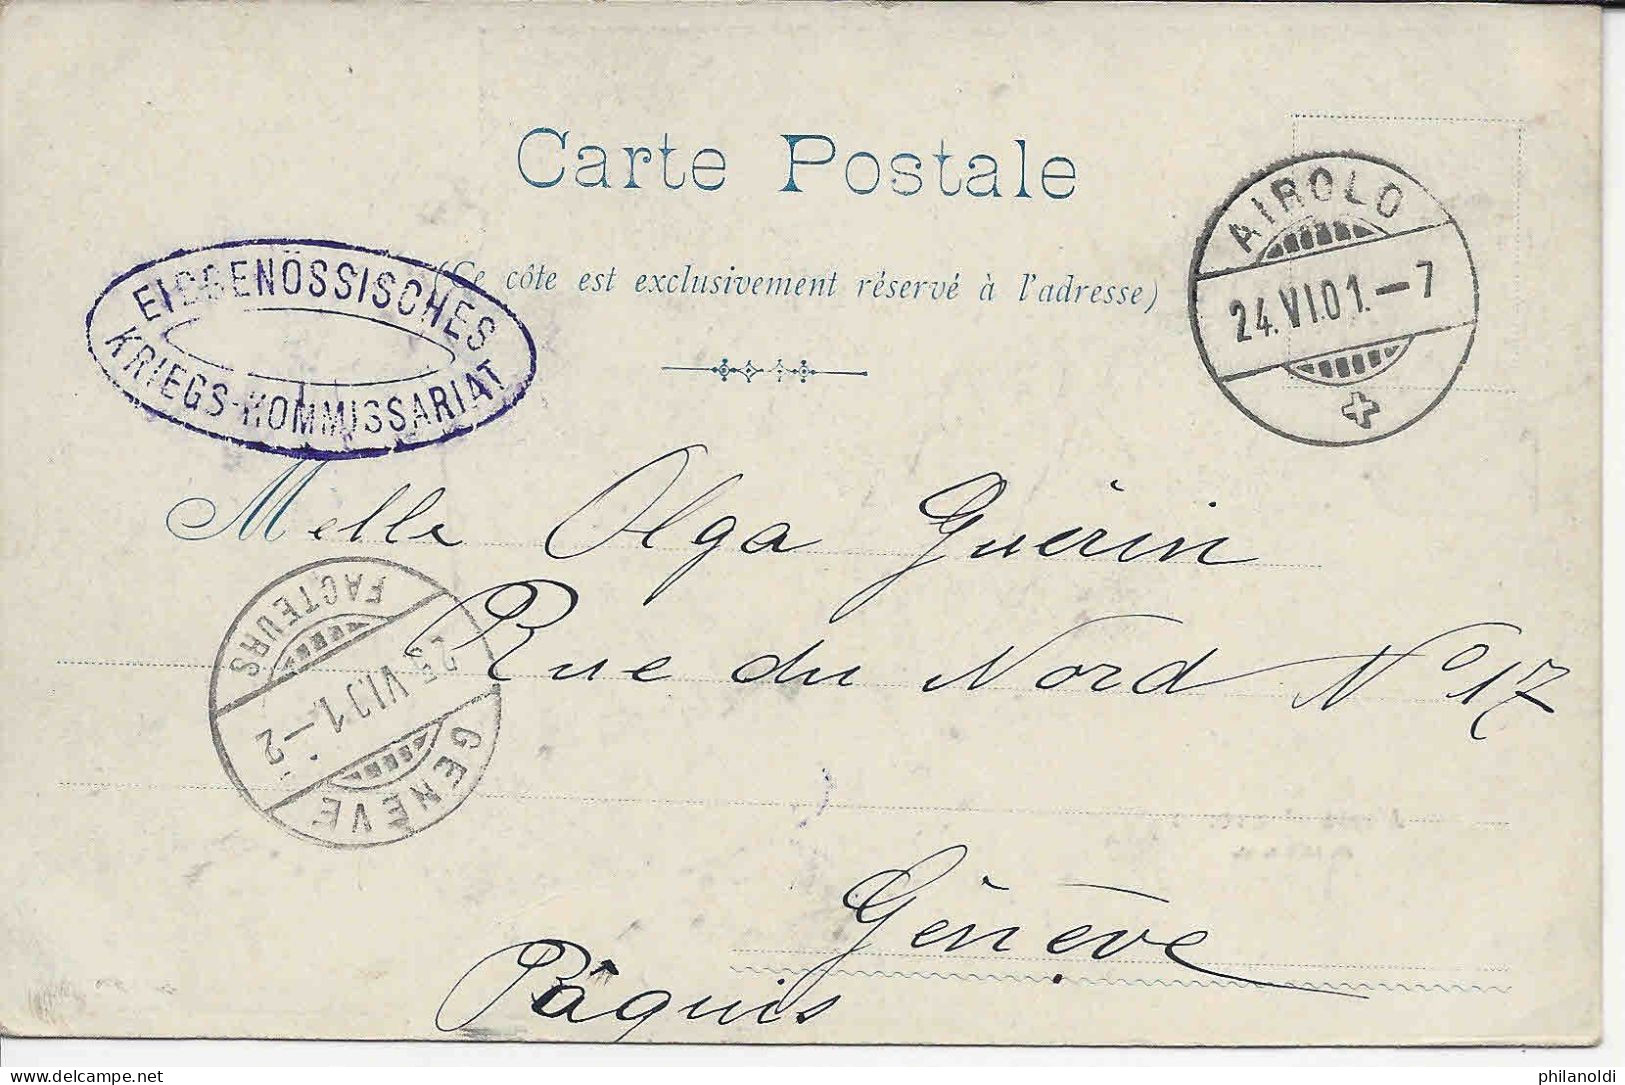 Carte Postale
(Ce côte est exclusivement réservé à l'adresse)
EIDGENÖSSISCHES
KRIEGS-KOMMISSARIAT
AIROLO
24.VI.01.-7
Melle Olga Guérin
Rue du Nord No 17
FACTEURS
25.VI.01.-2
GENÈVE
Genève
Pâquis
delcampe.net
philanoldi